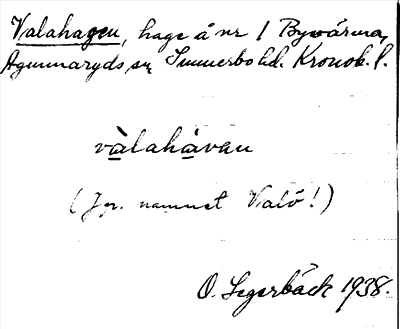 Valahagen, hage å nr 1 Bywärma,
Agunnaryds sn Sunnerbo hd. Kronob. l.
vàlahávan
(Jfr. namnet Valö!)
O. Segerbäck 1938.